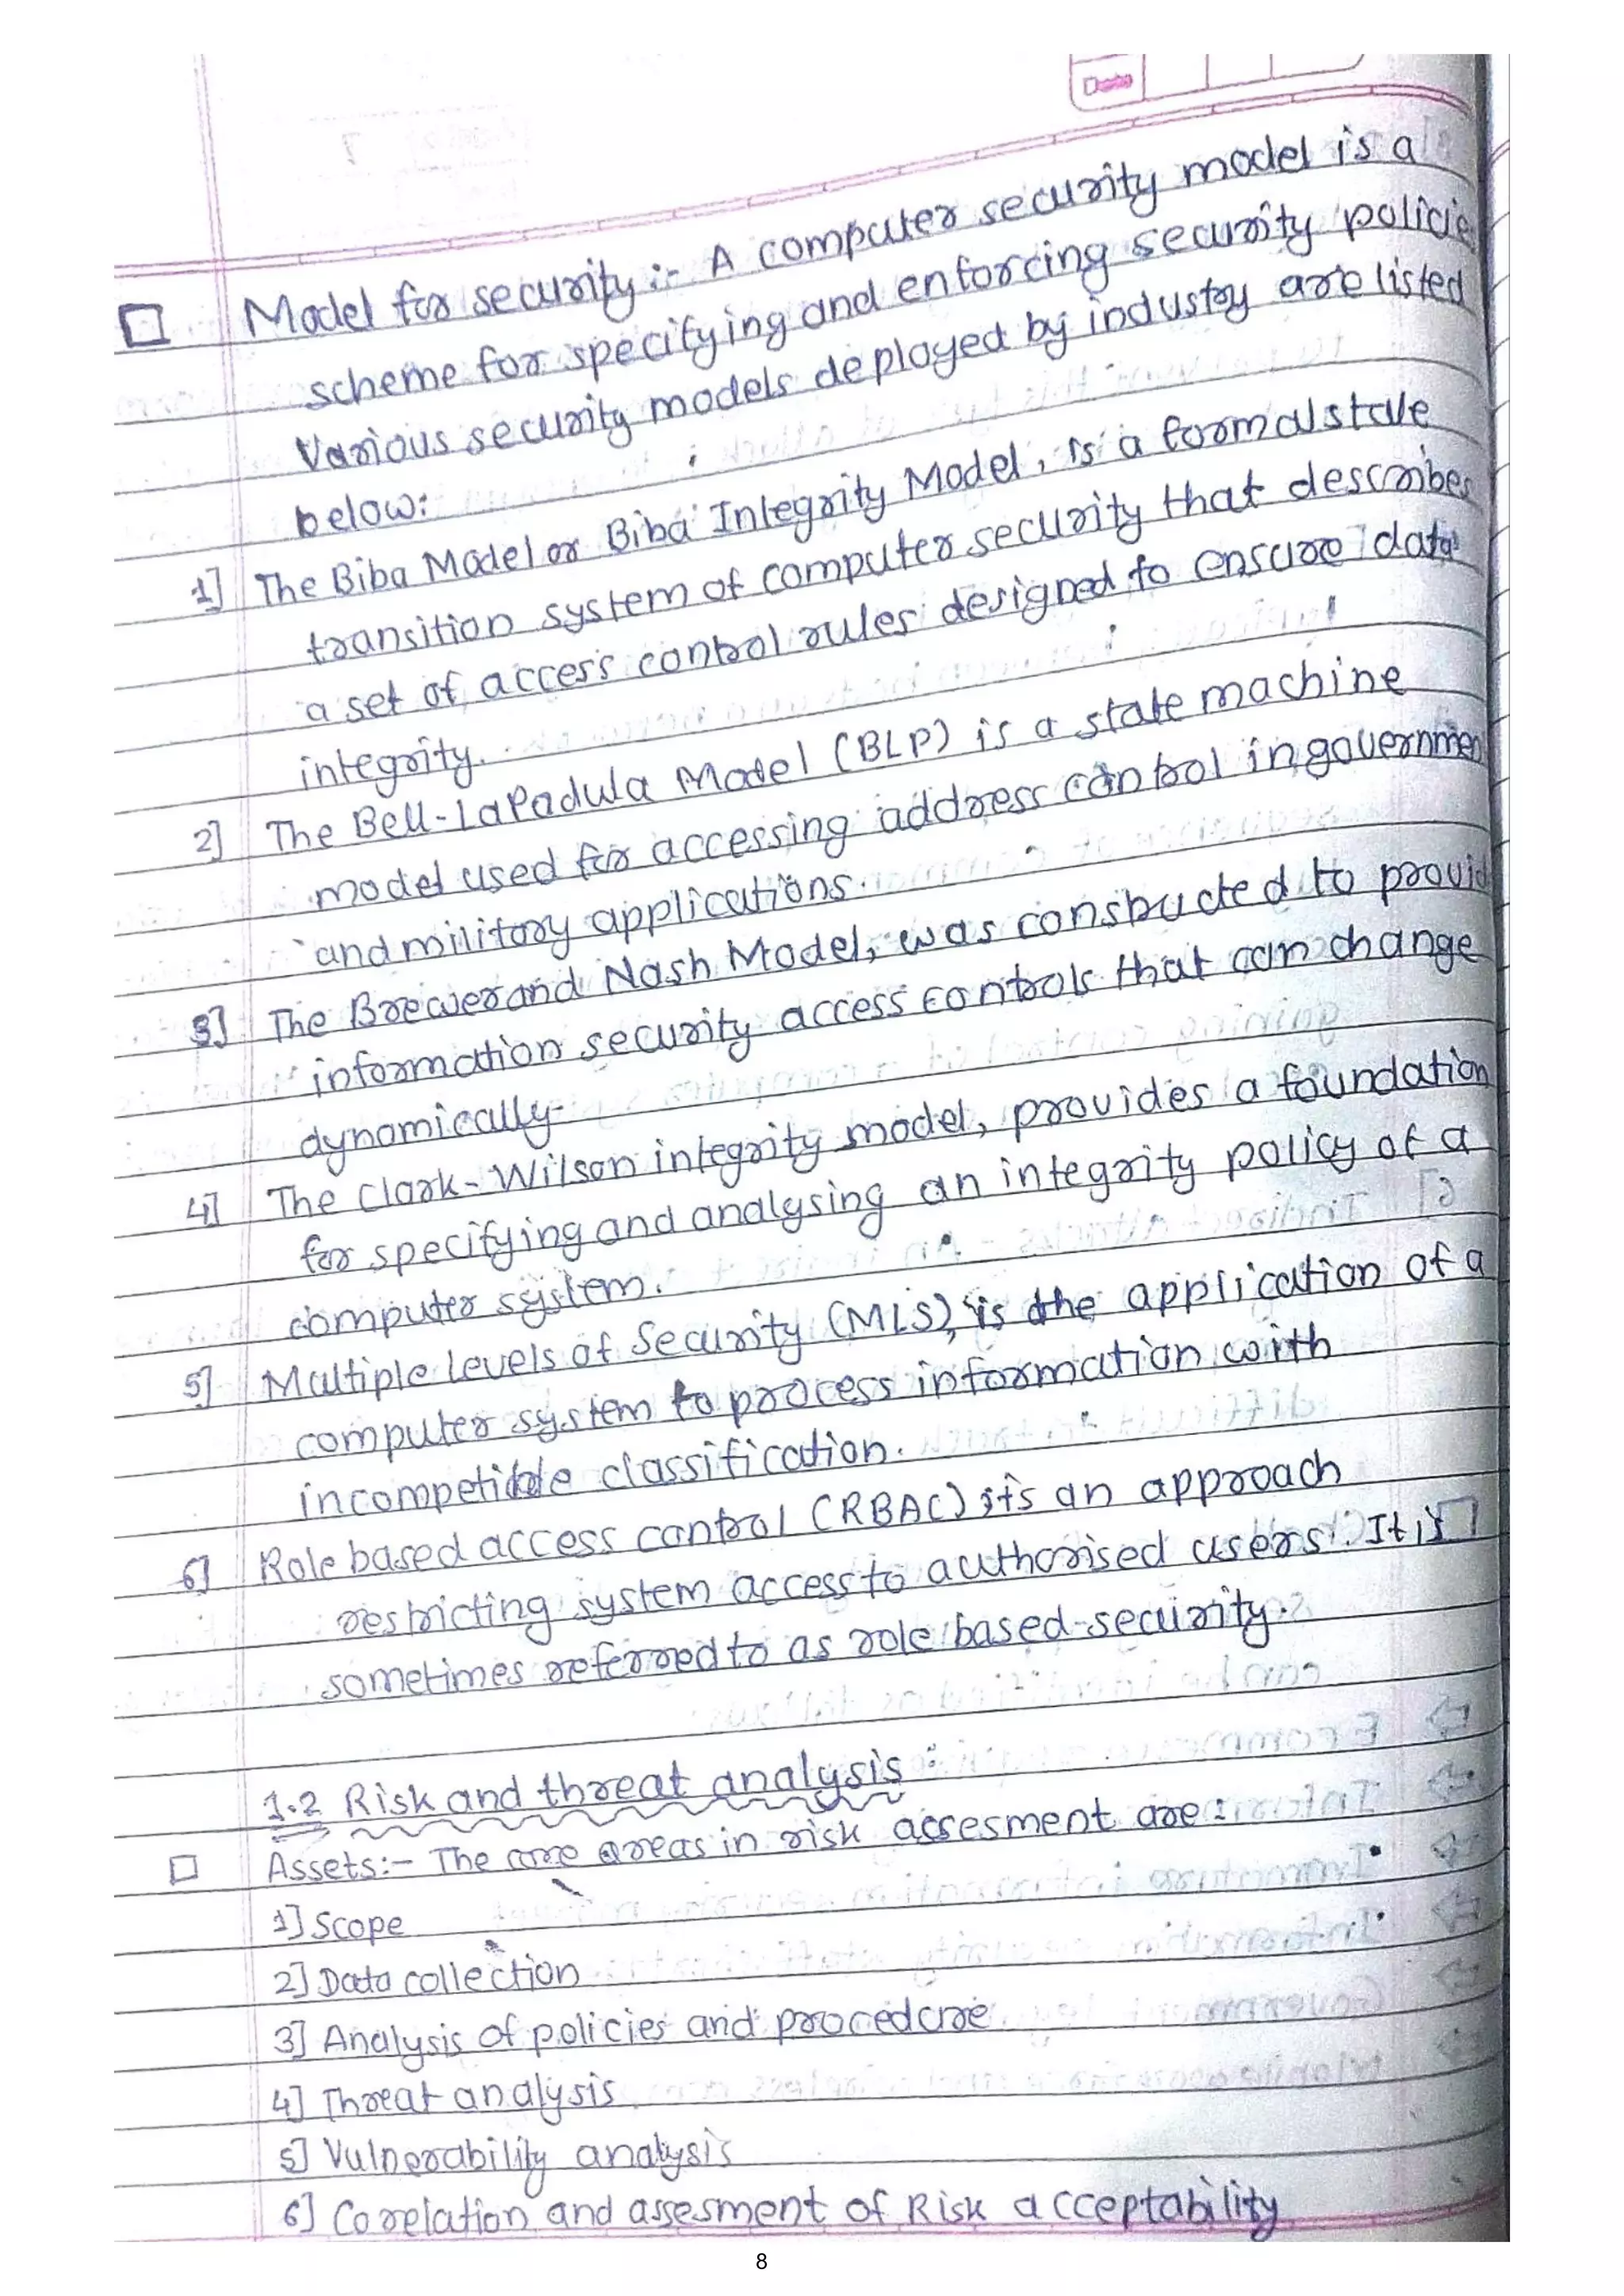 Date
□ Model for security :- A computer security model is a
scheme for specifying and enforcing security policie
Various security models deployed by industry are listed
below:
1] The Biba Model or Biba Integrity Model, is a formal state
transition system of computer security that describes
a set of access control rules designed to ensure data
integrity.
2] The Bell-LaPadula Model (BLP) is a state machine
model used for accessing address control in governmen
and military applications.
3] The Brewer and Nash Model, was constructed to provid
information security access controls that can change
dynamically.
4] The Clark-Wilson integrity model, provides a foundation
for specifying and analysing an integrity policy of a
computer system.
5] Multiple Levels of Security (MLS), is the application of a
computer system to process information with
incompetible classification.
6] Role based access control (RBAC) its an approach
restricting system access to authorised users. It is
sometimes referred to as role based-security.
1.2 Risk and threat analysis :
□ Assets:- The core areas in risk assesment are:
1] Scope
2] Data collection
3] Analysis of policies and procedure
4] Threat analysis
5] Vulnerability analysis
6] Corelation and assesment of Risk acceptability
8